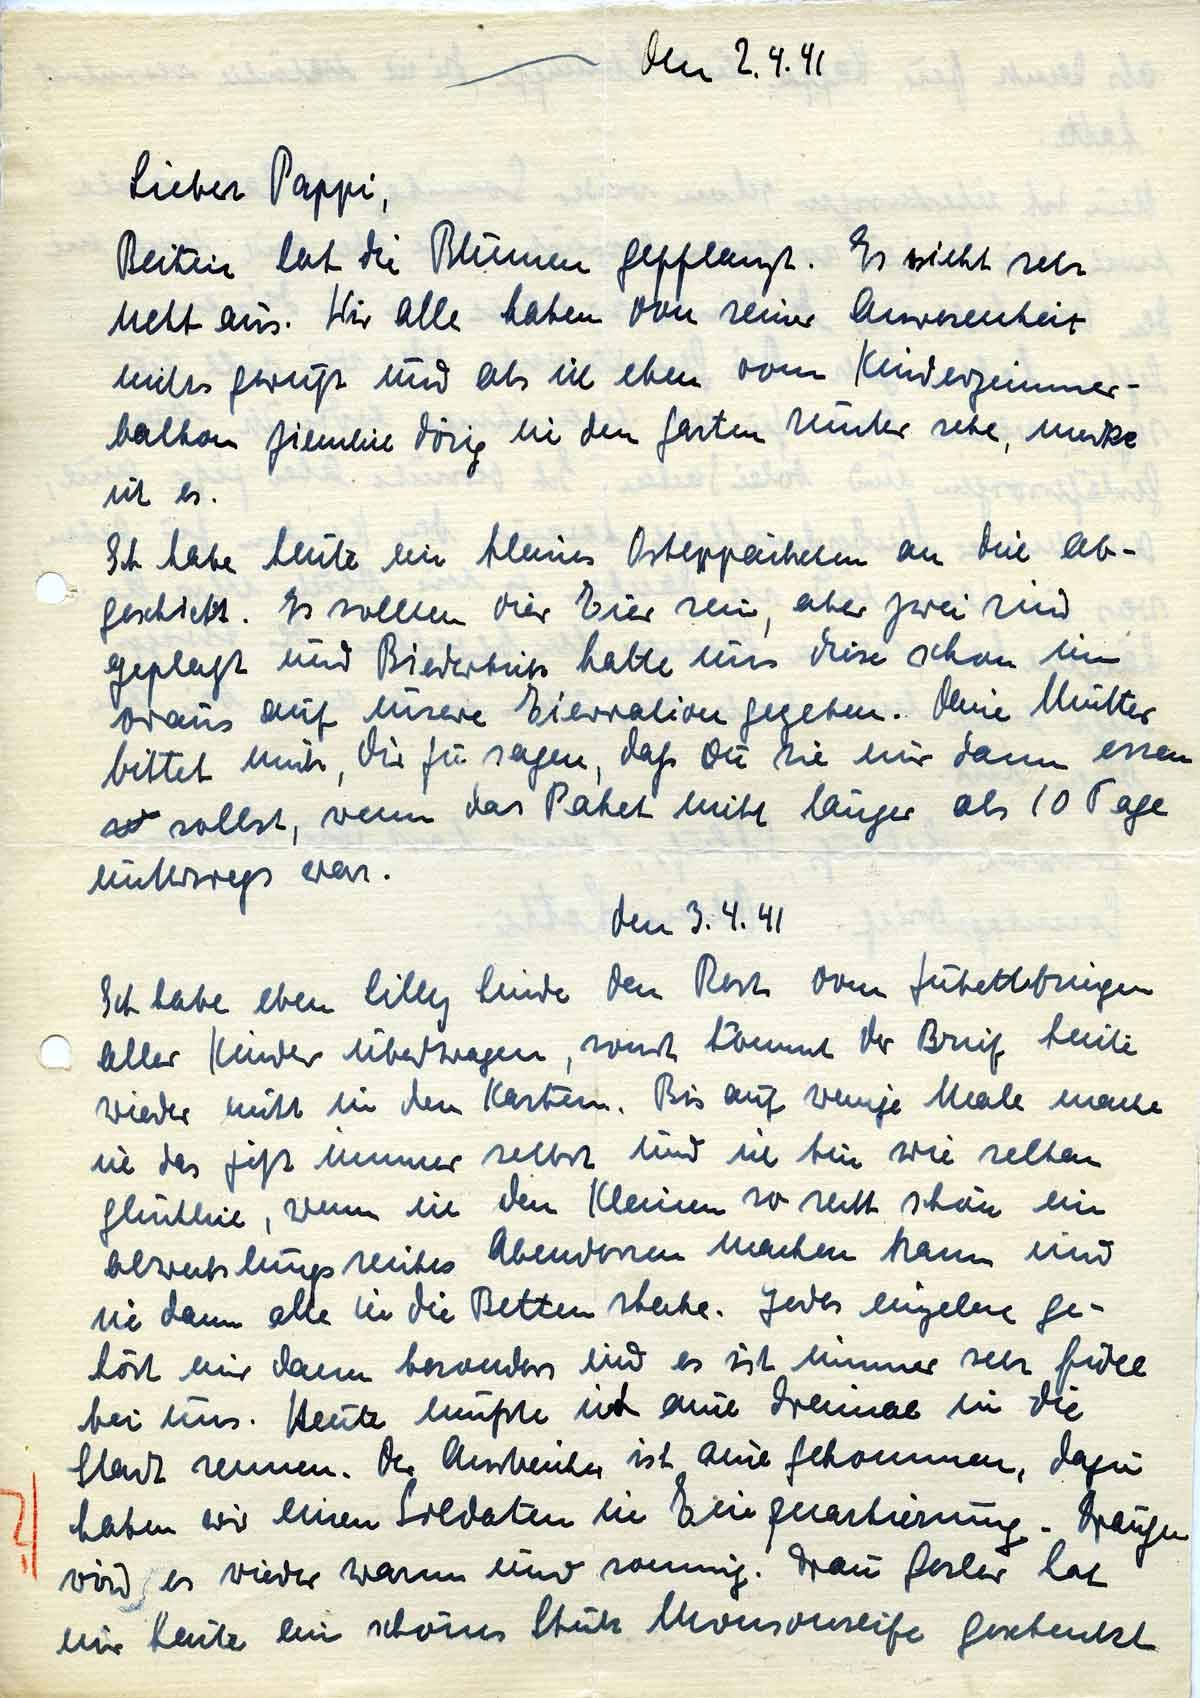 den 2.4.41
Lieber Pappi,
hat die Blumen gepflanzt. Es sieht sehr
nett aus. Wir alle haben von seiner Anwesenheit
nichts gewußt und als ich eben vom Kinderzimmer-
balkon ziemlich dösig in den Garten runter sehe, merke
ich es.
Ich habe heute ein kleines Osterpäckchen an dich ab-
geschickt. Es sollten vier Eier sein, aber zwei sind
geplatzt und hatte uns diese schon im
voraus auf unsere Eierration gegeben. Deine Mutter
bittet mich, dir zu sagen, daß Du sie nur dann essen
sollst, wenn das Paket nicht länger als 10 Tage
unterwegs war.
den 3.4.41
Ich habe eben Lilly Linde den Rest vom Zubettbringen
aller Kinder übertragen, sonst kommt der Brief heute
wieder nicht in den Kasten. Bis auf wenige Male mache
ich das jetzt immer selbst und ich bin wie selten
glücklich, wenn ich den Kleinen so recht schön ein
abwechslungsreiches Abendessen machen kann und
sie dann alle in die Betten stecke. Jedes einzelne ge-
hört mir dann besonders und es ist immer sehr fidel
bei uns. Heute mußte ich auch dreimal in die
Stadt rennen. Der ist auch gekommen, dazu
haben wir einen Soldaten in Einquartierung. Draußen
wird es wieder warm und sonnig. Frau hat
mir heute ein schönes Stück geschenkt